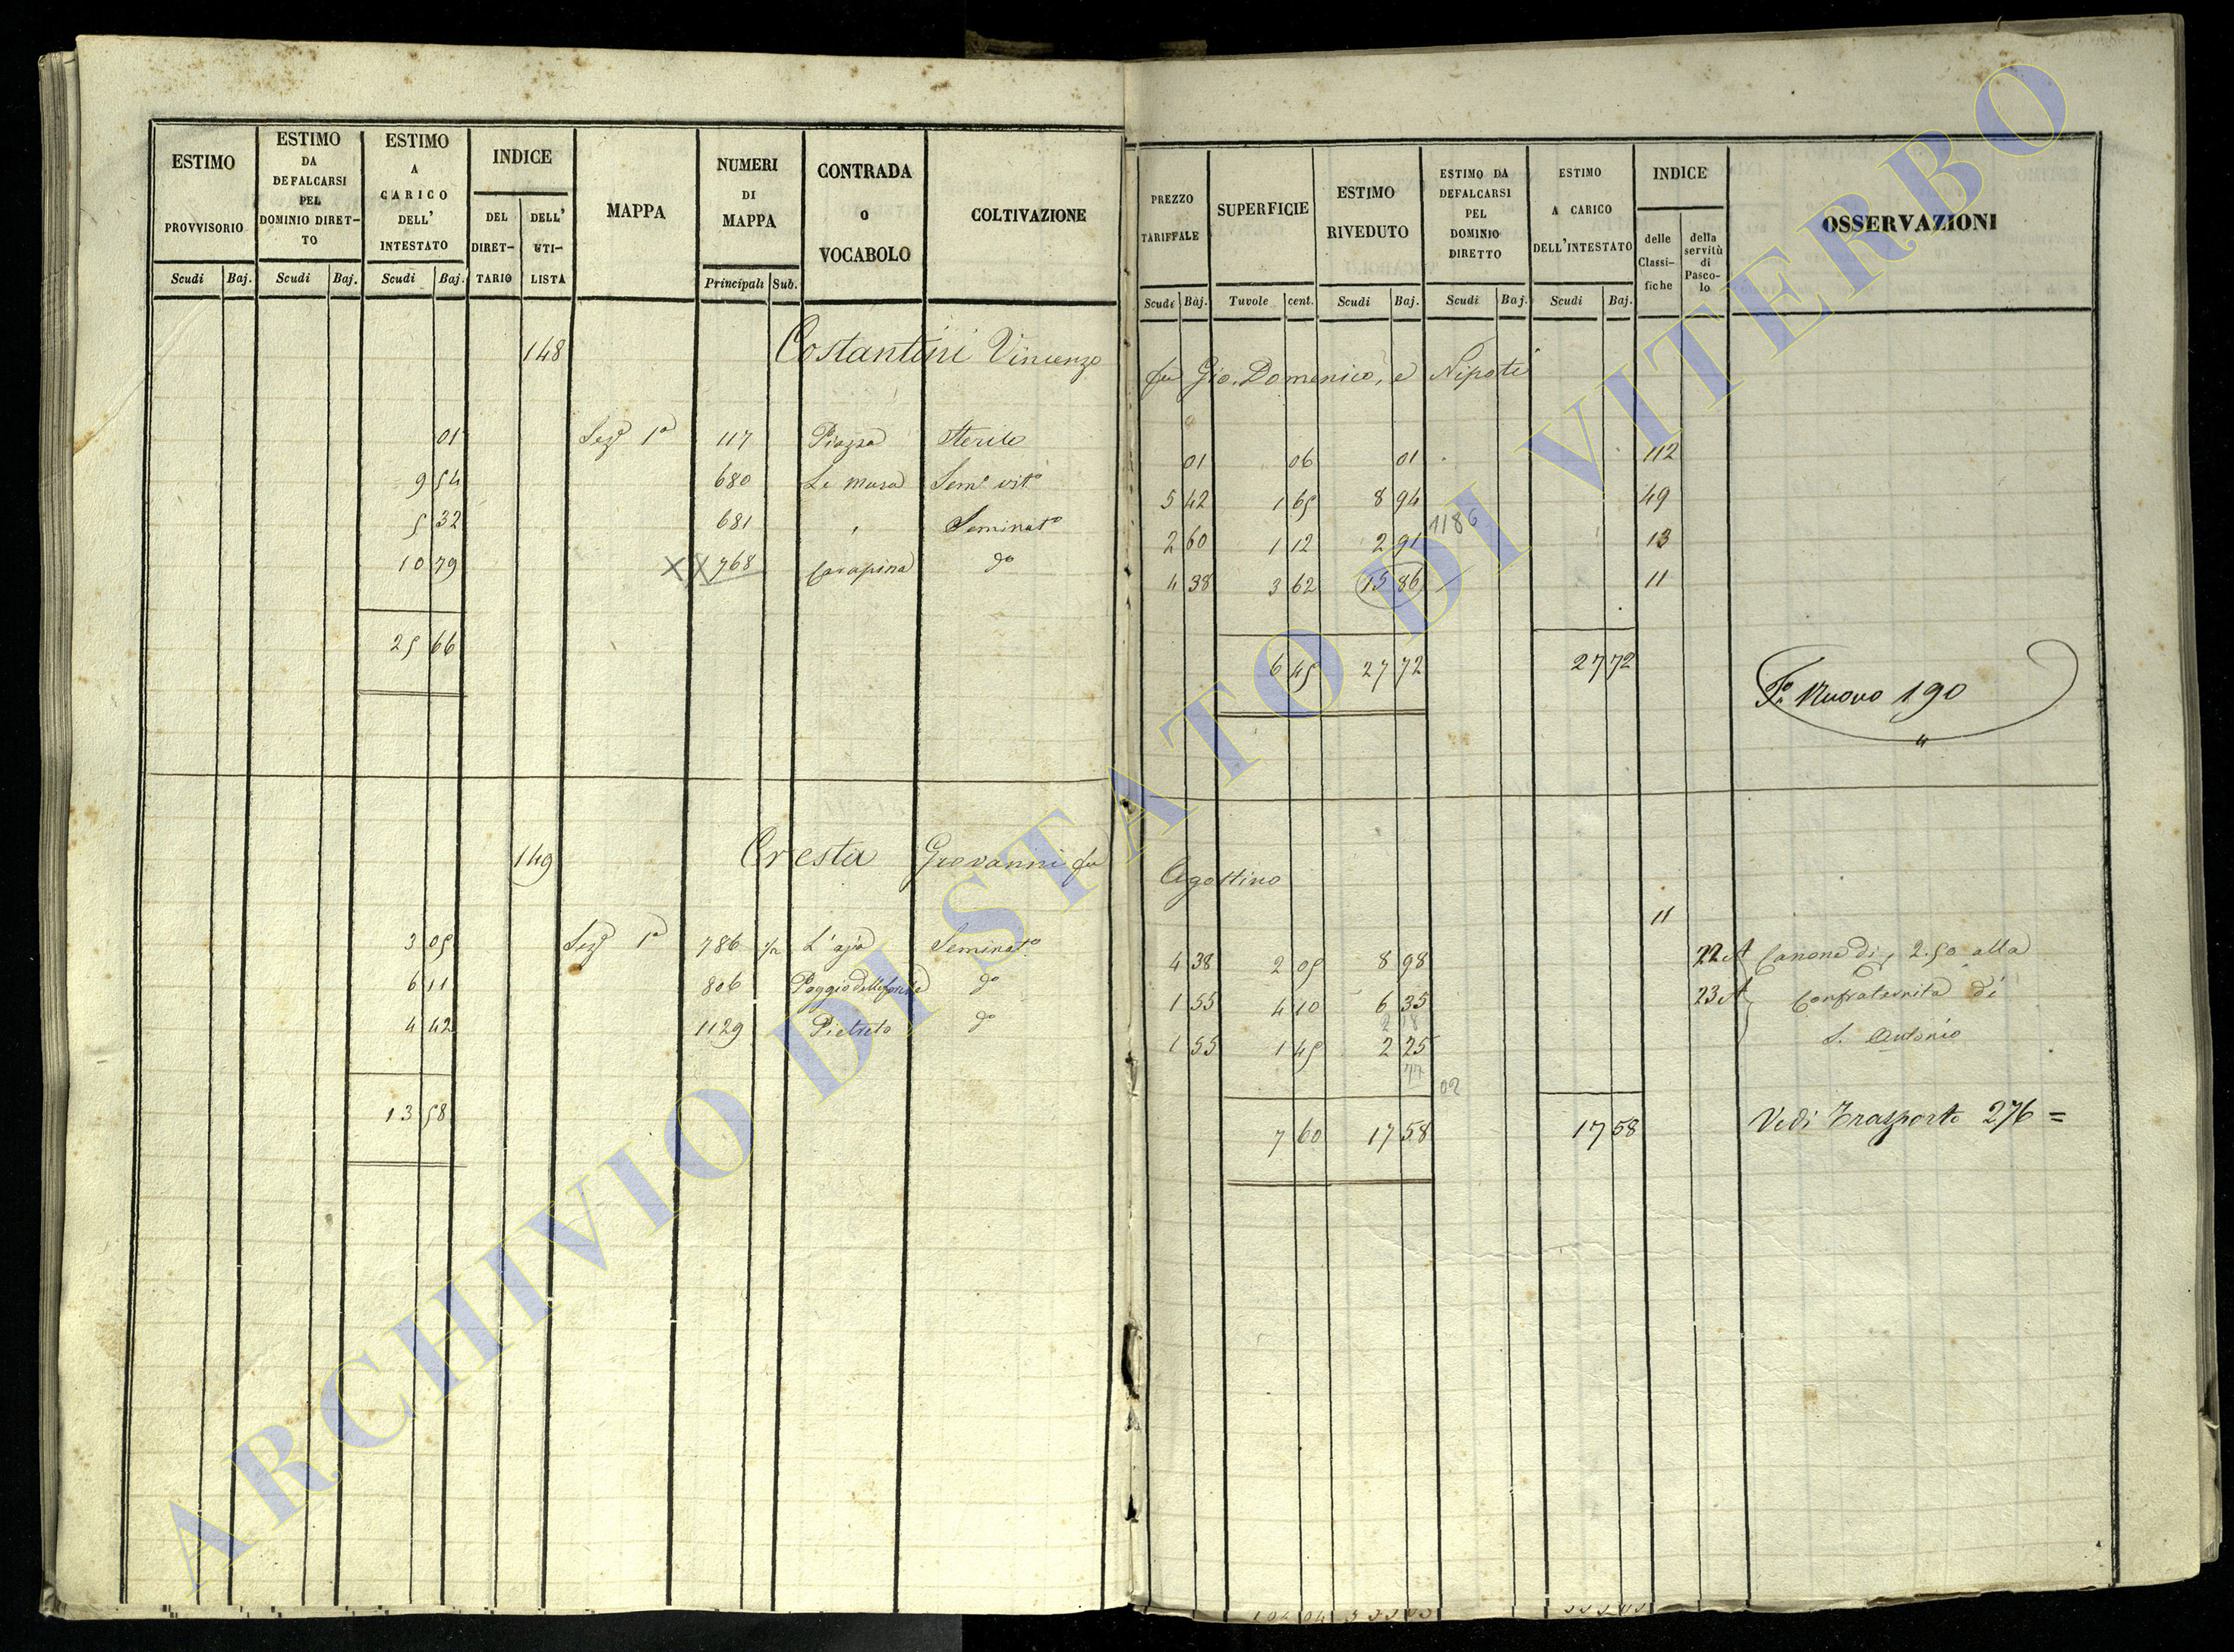 ESTIMO PROVVISORIO Scudi Baj.
ESTIMO DA DEFALCARSI PEL DOMINIO DIRETTO Scudi Baj.
ESTIMO A CARICO DELL' INTESTATO Scudi Baj.
INDICE DEL DIRETTARIO DELL' UTILISTA
MAPPA
NUMERI DI MAPPA Principali Sub.
CONTRADA O VOCABOLO
COLTIVAZIONE
PREZZO TARIFFALE Scudi Baj.
SUPERFICIE Tavole cent.
ESTIMO RIVEDUTO Scudi Baj.
ESTIMO DA DEFALCARSI PEL DOMINIO DIRETTO Scudi Baj.
ESTIMO A CARICO DELL'INTESTATO Scudi Baj.
INDICE delle Classifiche della servitù di Pascolo
OSSERVAZIONI
148 Costantini Vincenzo fu Gio. Domenico, e Nipoti
01 Sez.e 1a 117 Piazza Sterile 01 06 01 112
9 54 680 Le Mura Sem.o vit.o 5 42 1 65 8 94 49
5 32 681 " Seminat.o 2 60 1 12 2 91 13
1186
10 79 XX 768 Carapina do 4 38 3 62 15 86 11
25 66 6 45 27 72 27 72
F.o Nuovo 190
149 Cresta Giovanni fu Agostino
11
3 05 Sez.e 1a 786 1/2 L'aja Seminat.o 4 38 2 05 8 98 22 A Canone di 2.50 alla
6 11 806 Poggio delle forche do 1 55 4 10 6 35 23 A Confraternita di
4 42 1129 Pietreto do 1 55 1 45 2 25 S. Antonio
77 02
13 58 7 60 17 58 17 58 Vedi Trasporto 276 =
ARCHIVIO DI STATO DI VITERBO